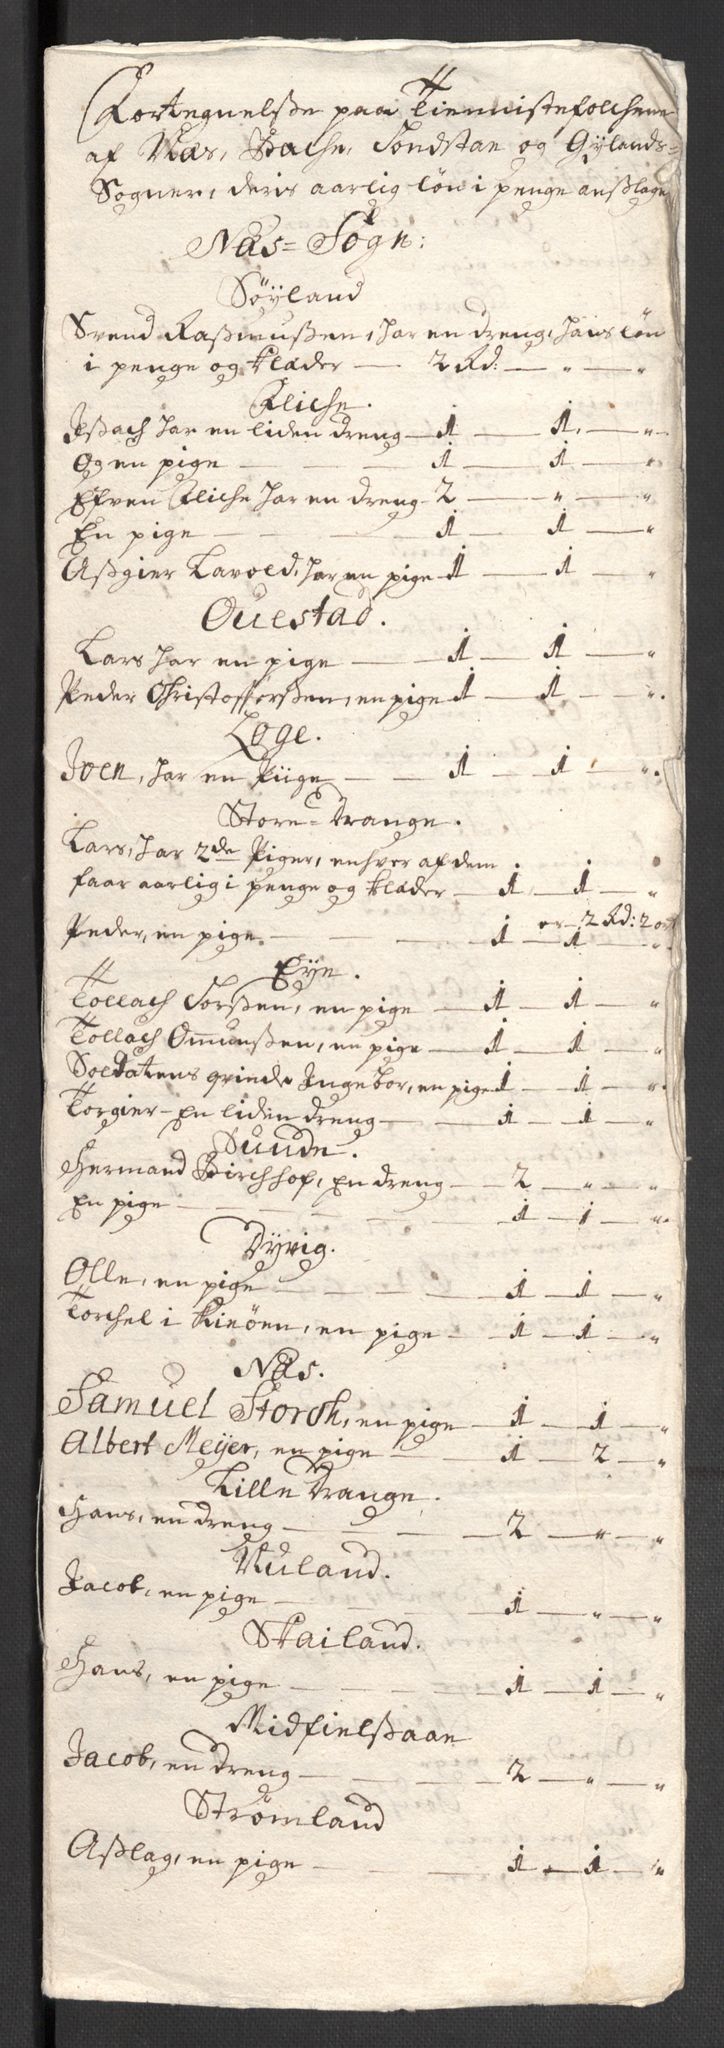 Fortegnelsse paa Tiennistefolchene
af Næs, Bache, Tonstae og Gÿlands=
Sogner, deris aarlig løn i penge anslagen
Næs= Sogn:
Søyland
Svend Rasmussen, har en dreng, hans løn
i penge og klæder — 2 Rd: — „ — „
Fliche.
Issach har en liden dreng — 1 — 1 — „
Og en pige — 1 — 1 — „
Efven Fliche har en dreng — 2 — „ — „
En pige — 1 — 1 — „
Assgier Lavold, har en pige 1 — 1 — „
Ouestad.
Lars har en pige — 1 — 1 — „
Peder Christoffersen, en pige 1 — 1 — „
Loge.
Joen, har en Piige — 1 — 1 — „
Store=Drange.
Lars, har 2de Piger, enhver af dem
faar aarlig i penge og klæder — 1 — 1 — „
er 2 Rd: 2 ort
Peder, en pige — 1 — 1 — „
Eye.
Tollach Torssen, en pige — 1 — 1 — „
Tollach Omunssen, en pige — 1 — 1 — „
Soldatens qvinde Ingebor, en pige 1 — 1 — „
Torgier — En liden dreng — 1 — 1 — „
Sunde.
Hermand Birchhof, En dreng — 2 — „ — „
En pige — 1 — 1 — „
Dyvig.
Olle, en pige — 1 — 1 — „
Torchel i Kieøen, en pige — 1 — 1 — „
Næs.
Samuel Storch, en pige — 1 — 1 — „
Albert Meÿer, en pige — 1 — 2 — „
Lille Drange.
Hans, en dreng — 2 — „ — „
Nuland.
Jacob, en pige — 1 — „ — „
Skailand.
Hans, en pige — 1 — 1 — „
Midfielssaae
Jacob, en dreng — 2 — „ — „
Strømland
Asslag, en pige — 1 — 1 — „